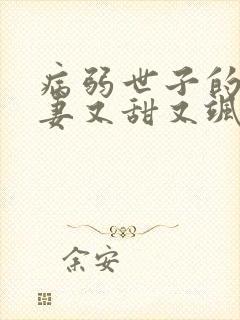 病弱世子的
妻又甜又飒
余安